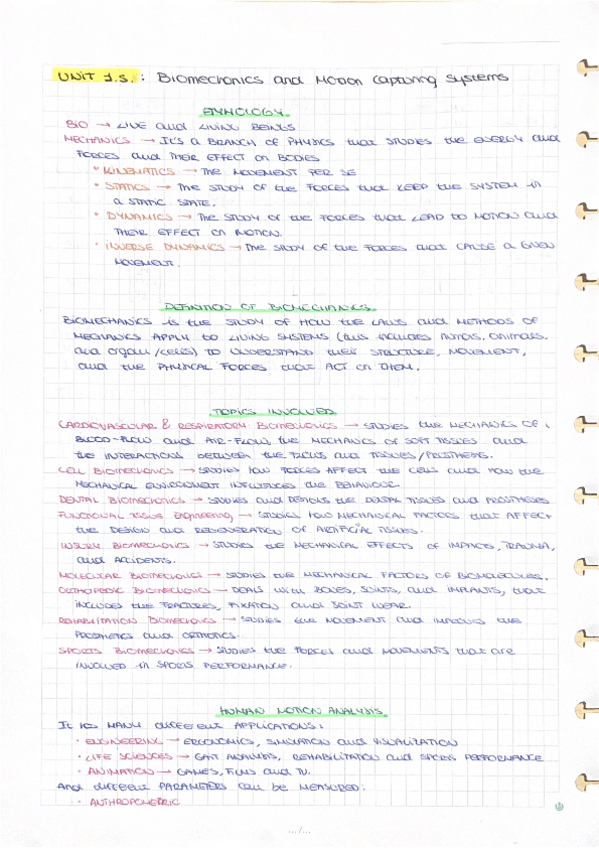 UNIT 1.S.: Biomechanics and Motion Capturing Systems
ETYMOLOGY
BIO → LIVE and LIVING BEINGS
MECHANICS → IT'S A BRANCH OF PHYSICS that STUDIES the ENERGY and
FORCES and THEIR EFFECT on BODIES
• KINEMATICS → The MOVEMENT PER SE
• STATICS → The STUDY of the FORCES that KEEP the SYSTEM in
a STATIC STATE.
• DYNAMICS → The STUDY of the FORCES that LEAD to MOTION and
THEIR EFFECT on MOTION.
• INVERSE DYNAMICS → The STUDY OF the FORCES that CAUSE a GIVEN
MOVEMENT.
DEFINITION OF BIOMECHANICS
BIOMECHANICS is the STUDY OF HOW the LAWS and METHODS OF
MECHANICS APPLY to LIVING SYSTEMS (this includes HUMANS, animals,
and organs/cells) to UNDERSTAND their STRUCTURE, MOVEMENT,
and the PHYSICAL FORCES that ACT on THEM.
TOPICS INVOLVED
CARDIOVASCULAR & RESPIRATORY Biomechanics → STUDIES the MECHANICS OF
BLOOD-FLOW and AIR-FLOW, the MECHANICS OF SOFT TISSUES and
the INTERACTIONS BETWEEN the and TISSUES/PROSTHESIS.
CELL BIOMECHANICS → STUDIES HOW FORCES AFFECT the CELLS and HOW the
MECHANICAL ENVIRONMENT INFLUENCES the BEHAVIOUR.
DENTAL BIOMECHANICS → STUDIES and the DENTAL TISSUES and PROSTHESES
FUNCTIONAL TISSUE Engineering → STUDIES HOW MECHANICAL FACTORS that AFFECT
the DESIGN and REGENERATION OF ARTIFICIAL TISSUES.
INJURY BIOMECHANICS → STUDIES the MECHANICAL EFFECTS OF IMPACTS, TRAUMA,
and ACCIDENTS.
MOLECULAR BIOMECHANICS → STUDIES the MECHANICAL FACTORS OF BIOMOLECULES.
ORTHOPEDIC BIOMECHANICS → DEALS with BONES, JOINTS, and IMPLANTS, that
INCLUDES the FRACTURES, FIXATION and JOINT WEAR.
REHABILITATION BIOMECHANICS → STUDIES the MOVEMENT and IMPROVES the
PROSTHETICS and ORTHOTICS.
SPORTS BIOMECHANICS → STUDIES the FORCES and MOVEMENTS that are
INVOLVED in SPORTS PERFORMANCE.
HUMAN MOTION ANALYSIS
It has MANY different APPLICATIONS:
• ENGINEERING → ERGONOMICS, SIMULATION and VISUALIZATION
• LIFE SCIENCES → GAIT ANALYSIS, REHABILITATION and SPORTS PERFORMANCE
• ANIMATION → GAMES, FILMS and TV.
And different PARAMETERS can be MEASURED:
• ANTHROPOMETRIC
.../...